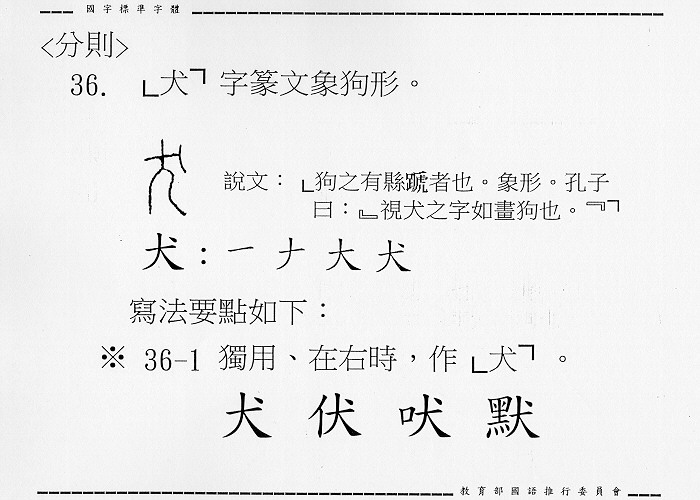 國字標準字體
<分則>
36. ﹂犬﹁字篆文象狗形。
說文：﹂狗之有縣蹏者也。象形。孔子
曰：﹄視犬之字如畫狗也。﹃﹁
犬：一ナ大犬
寫法要點如下：
※ 36-1 獨用、在右時，作﹂犬﹁。
犬 伏 吠 默
教育部國語推行委員會